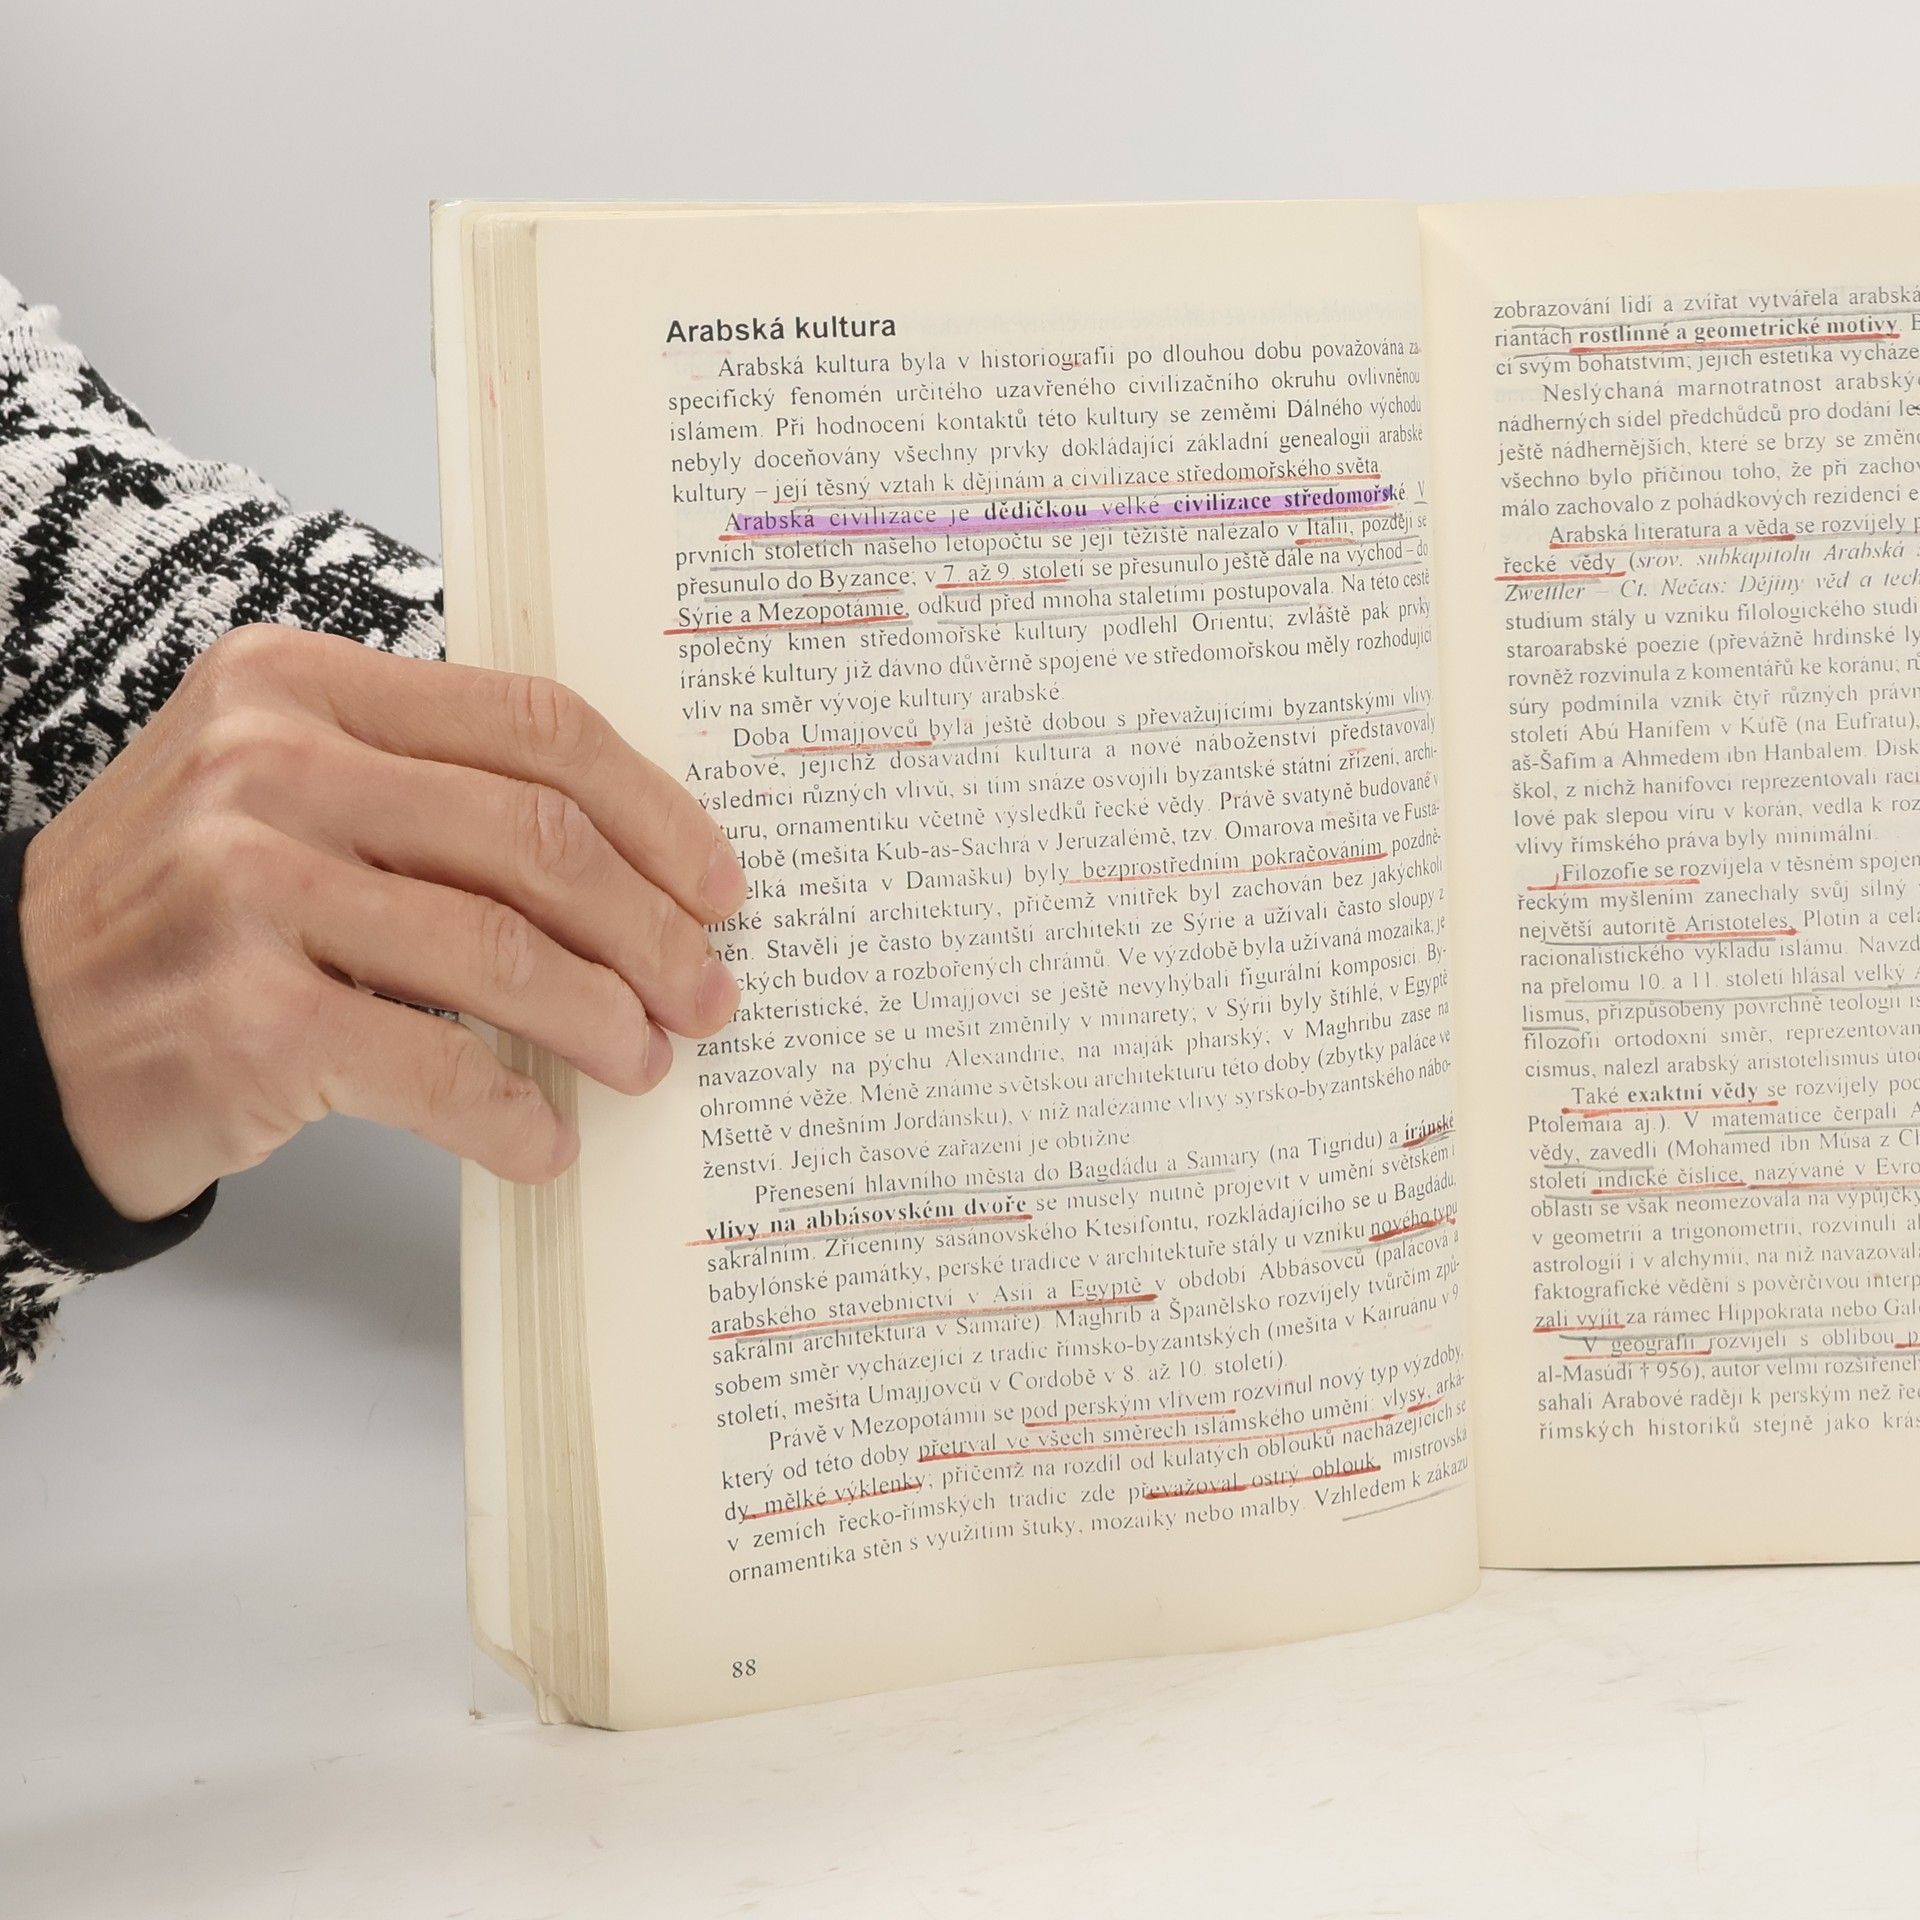 Arabská kultura
Arabská kultura byla v historiografii po dlouhou dobu považována za
specifický fenomén určitého uzavřeného civilizačního okruhu ovlivněnou
islámem. Při hodnocení kontaktů této kultury se zeměmi Dálného východu
nebyly doceňovány všechny prvky dokládající základní genealogii arabské
kultury – její těsný vztah k dějinám a civilizace středomořského světa.
Arabská civilizace je dědičkou velké civilizace středomořské. V
prvních stoletích našeho letopočtu se její těžiště nalézalo v Itálii, později se
přesunulo do Byzance; v 7. až 9. století se přesunulo ještě dále na východ – do
Sýrie a Mezopotámie, odkud před mnoha staletími postupovala. Na této cestě
společný kmen středomořské kultury podlehl Orientu; zvláště pak prvky
íránské kultury již dávno důvěrně spojené ve středomořskou měly rozhodující
vliv na směr vývoje kultury arabské.
Doba Umajjovců byla ještě dobou s převažujícími byzantskými vlivy.
Arabové, jejichž dosavadní kultura a nové náboženství představovaly
výslednici různých vlivů, si tím snáze osvojili byzantské státní zřízení, archi-
turu, ornamentiku včetně výsledků řecké vědy. Právě svatyně budované v
době (mešita Kub-as-Sachrá v Jeruzalémě, tzv. Omarova mešita ve Fusta-
elká mešita v Damašku) byly bezprostředním pokračováním pozdně-
mské sakrální architektury, přičemž vnitřek byl zachován bez jakýchkoli
měn. Stavěli je často byzantští architekti ze Sýrie a užívali často sloupy z
ckých budov a rozbořených chrámů. Ve výzdobě byla užívaná mozaika; je
rakteristické, že Umajjovci se ještě nevyhýbali figurální kompozici. By-
zantské zvonice se u mešit změnily v minarety; v Sýrii byly štíhlé, v Egyptě
navazovaly na pýchu Alexandrie, na maják pharský; v Maghribu zase na
ohromné věže. Méně známe světskou architekturu této doby (zbytky paláce ve
Mšettě v dnešním Jordánsku), v níž nalézáme vlivy syrsko-byzantského nábo-
ženství. Jejich časové zařazení je obtížné.
Přenesení hlavního města do Bagdádu a Samary (na Tigridu) a íránské
vlivy na abbásovském dvoře se musely nutně projevit v umění světském i
sakrálním. Zříceniny sásánovského Ktesifontu, rozkládajícího se u Bagdádu,
babylónské památky, perské tradice v architektuře stály u vzniku nového typu
arabského stavebnictví v Asii a Egyptě v období Abbásovců (palácová a
sakrální architektura v Samaře). Maghrib a Španělsko rozvíjely tvůrčím způ-
sobem směr vycházející z tradic římsko-byzantských (mešita v Kairuánu v 9.
století, mešita Umajjovců v Cordobě v 8. až 10. století).
Právě v Mezopotámii se pod perským vlivem rozvinul nový typ výzdoby,
který od této doby přetrval ve všech směrech islámského umění: vlysy, arká-
dy, mělké výklenky; přičemž na rozdíl od kulatých oblouků nacházejících se
v zemích řecko-římských tradic zde převažoval ostrý oblouk, mistrovská
ornamentika stěn s využitím štuky, mozaiky nebo malby. Vzhledem k zákazu
88
zobrazování lidí a zvířat vytvářela arabská
riantách rostlinné a geometrické motivy.
cí svým bohatstvím; jejich estetika vycháze
Neslýchaná marnotratnost arabský
nádherných sídel předchůdců pro dodání
ještě nádhernějších, které se brzy se změn
všechno bylo příčinou toho, že při zachov
málo zachovalo z pohádkových rezidencí
Arabská literatura a věda se rozvíjely
řecké vědy (srov. subkapitolu Arabská
Zwettler – Ct. Nečas: Dějiny věd a tech
studium stály u vzniku filologického studi
staroarabské poezie (převážně hrdinské ly
rovněž rozvinula z komentářů ke koránu;
súry podmínila vznik čtyř různých práv
století Abú Hanífem v Kúfě (na Eufratu),
aš-Šafím a Ahmedem ibn Hanbalem. Disk
škol, z nichž hanífovci reprezentovali raci
lové pak slepou víru v korán, vedla k roz
vlivy římského práva byly minimální.
Filozofie se rozvíjela v těsném spojen
řeckým myšlením zanechaly svůj silný
největší autoritě Aristoteles, Plotin a cel
racionalistického výkladu islámu. Navzd
na přelomu 10. a 11. století hlásal velký
lismus, přizpůsobený povrchně teologii
filozofii ortodoxní směr, reprezentovan
cismus, nalezl arabský aristotelismus úto
Také exaktní vědy se rozvíjely pod
Ptolemaia aj.). V matematice čerpali
vědy, zavedli (Mohamed ibn Músa z
století indické číslice, nazývané v Evro
oblasti se však neomezovala na výpůjčky
v geometrii a trigonometrii, rozvinuli
astrologii i v alchymii, na niž navazoval
faktografické vědění s pověrčivou interp
zali vyjít za rámec Hippokrata nebo Gal
V geografii rozvíjeli s oblibou
al-Masúdí † 956), autor velmi rozšířené
sahali Arabové raději k perským než
římských historiků stejně jako krás